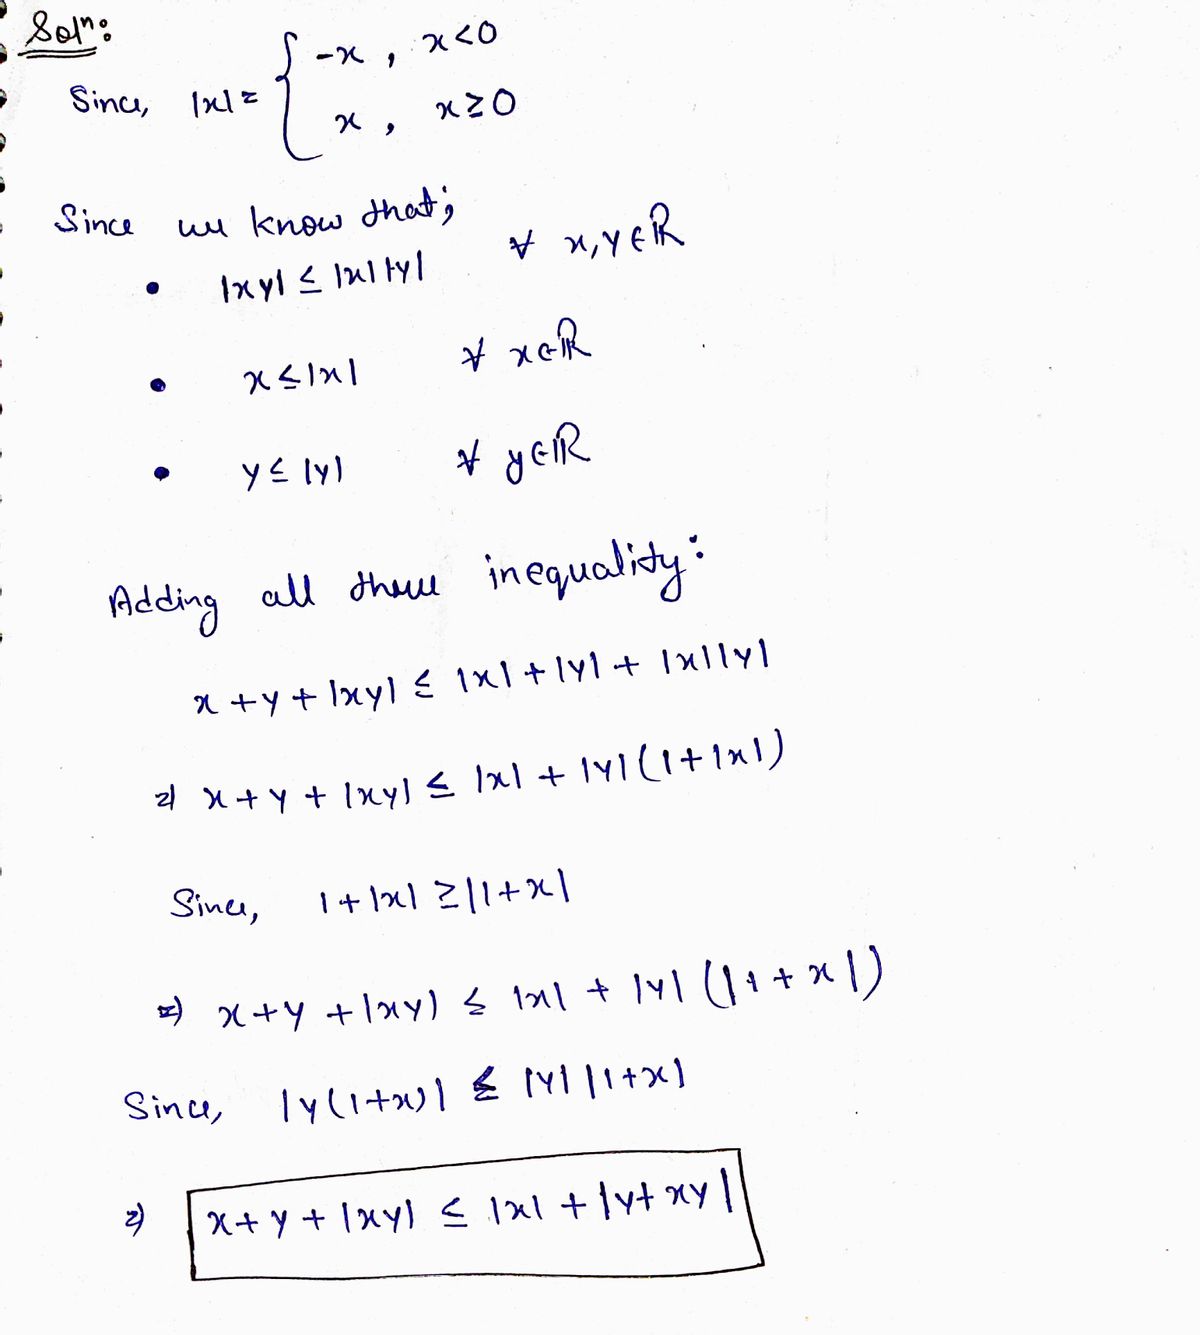 Solⁿ:
Since, |x| = { -x , x<0
x , x≥0
Since we know that;
• |xy| ≤ |x||y| ∀ x,y∈ℝ
• x≤|x| ∀ x∈ℝ
• y≤|y| ∀ y∈ℝ
Adding all these inequality:
x+y+|xy| ≤ |x|+|y|+|x||y|
⇒ x+y+|xy| ≤ |x|+|y|(1+|x|)
Since, 1+|x| ≥|1+x|
⇒ x+y+|xy| ≤ |x|+|y|(|1+x|)
Since, |y(1+x)| ≤ |y||1+x|
⇒ x+y+|xy| ≤ |x|+|y+xy|